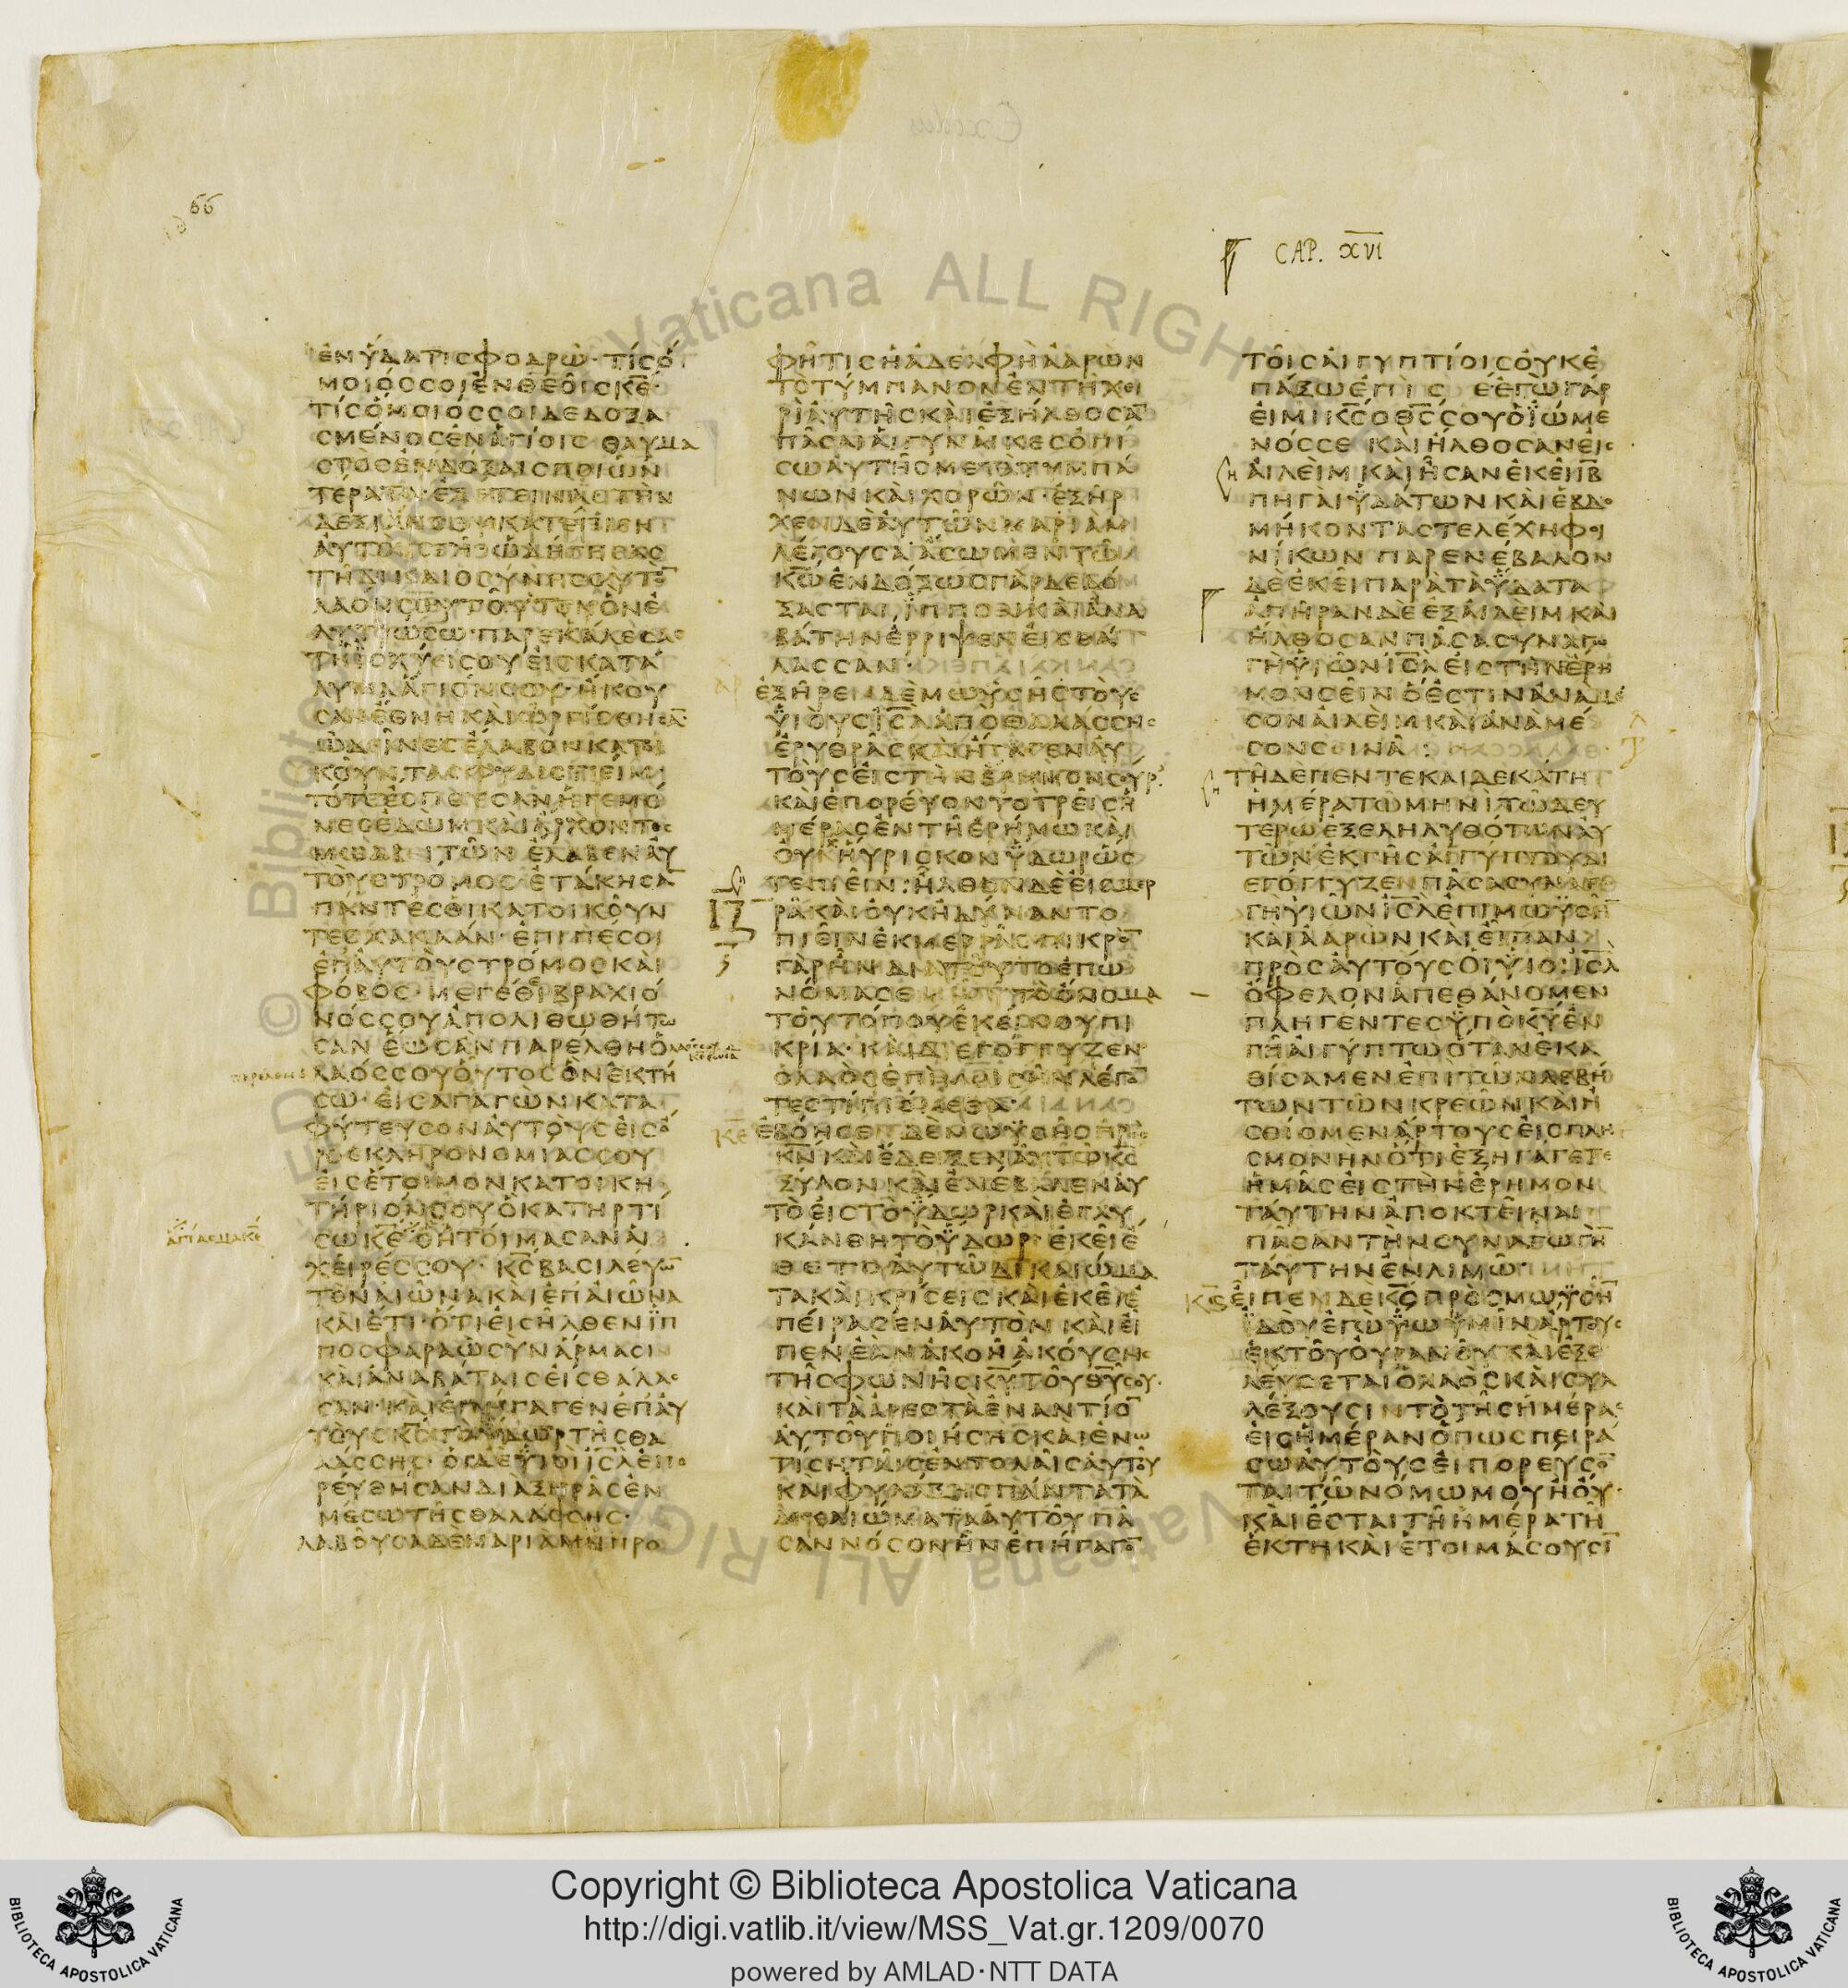 56
CAP. XVI
ΕΝ ΥΔΑΤΙ ΣΦΟΔΡΩ· ΤΙΣ Ο
ΜΟΙΟΣ ΣΟΙ ΕΝ ΘΕΟΙΣ ΚΕ·
ΤΙΣ ΟΜΟΙΟΣ ΣΟΙ ΔΕΔΟΞΑ
ΣΜΕΝΟΣ ΕΝ ΑΓΙΟΙΣ ΘΑΥΜΑ
ΣΤΟΣ ΕΝ ΔΟΞΑΙΣ ΠΟΙΩΝ
ΤΕΡΑΤΑ· ΕΞΕΤΕΙΝΑΣ ΤΗΝ
ΔΕΞΙΑΝ ΣΟΥ ΚΑΤΕΠΙΕΝ
ΑΥΤΟΥΣ ΓΗ ΩΔΗΓΗΣΑΣ
ΤΗ ΔΙΚΑΙΟΣΥΝΗ ΣΟΥ ΤΟ
ΛΑΟΝ ΣΟΥ ΤΟΥΤΟΝ ΟΝ Ε
ΛΥΤΡΩΣΩ· ΠΑΡΕΚΑΛΕΣΑΣ
ΤΗ ΙΣΧΥΙ ΣΟΥ ΕΙΣ ΚΑΤΑ
ΛΥΜΑ ΑΓΙΟΝ ΣΟΥ· ΗΚΟΥ
ΣΑΝ ΕΘΝΗ ΚΑΙ ΩΡΓΙΣΘΗΣΑ
ΩΔΕΙΝΕΣ ΕΛΑΒΟΝ ΚΑΤΟΙ
ΚΟΥΝΤΑΣ ΦΥΛΙΣΤΙΕΙΜ·
ΤΟΤΕ ΕΣΠΕΥΣΑΝ ΗΓΕΜΟ
ΝΕΣ ΕΔΩΜ ΚΑΙ ΑΡΧΟΝΤΕΣ
ΜΩΑΒΙΤΩΝ ΕΛΑΒΕΝ ΑΥ
ΤΟΥΣ ΤΡΟΜΟΣ ΕΤΑΚΗΣΑ
ΠΑΝΤΕΣ ΟΙ ΚΑΤΟΙΚΟΥΝ
ΤΕΣ ΧΑΝΑΑΝ· ΕΠΙΠΕΣΟΙ
ΕΠ ΑΥΤΟΥΣ ΤΡΟΜΟΣ ΚΑΙ
ΦΟΒΟΣ· ΜΕΓΕΘΕΙ ΒΡΑΧΙΟ
ΝΟΣ ΣΟΥ ΑΠΟΛΙΘΩΘΗΤΩ
ΣΑΝ ΕΩΣ ΑΝ ΠΑΡΕΛΘΗ Ο
ΛΑΟΣ ΣΟΥ ΟΥΤΟΣ ΟΝ ΕΚΤΗ
ΣΩ· ΕΙΣΑΓΑΓΩΝ ΚΑΤΑ
ΦΥΤΕΥΣΟΝ ΑΥΤΟΥΣ ΕΙΣ Ο
ΡΟΣ ΚΛΗΡΟΝΟΜΙΑΣ ΣΟΥ
ΕΙΣ ΕΤΟΙΜΟΝ ΚΑΤΟΙΚΗ
ΤΗΡΙΟΝ ΣΟΥ Ο ΚΑΤΗΡΤΙ
ΣΩ ΚΕ Ο ΗΤΟΙΜΑΣΑΝ ΑΙ
ΧΕΙΡΕΣ ΣΟΥ· ΚΣ ΒΑΣΙΛΕΥΩ
ΤΟΝ ΑΙΩΝΑ ΚΑΙ ΕΠ ΑΙΩΝΑ
ΚΑΙ ΕΤΙ· ΟΤΙ ΕΙΣΗΛΘΕΝ ΙΠ
ΠΟΣ ΦΑΡΑΩ ΣΥΝ ΑΡΜΑΣΙΝ
ΚΑΙ ΑΝΑΒΑΤΑΙΣ ΕΙΣ ΘΑΛΑΣ
ΣΑΝ· ΚΑΙ ΕΠΗΓΑΓΕΝ ΕΠ ΑΥ
ΤΟΥΣ ΚΣ ΤΟ ΥΔΩΡ ΤΗΣ ΘΑ
ΛΑΣΣΗΣ· ΟΙ ΔΕ ΥΙΟΙ ΙΣΛ ΕΠΟ
ΡΕΥΘΗΣΑΝ ΔΙΑ ΞΗΡΑΣ ΕΝ
ΜΕΣΩ ΤΗΣ ΘΑΛΑΣΣΗΣ·
ΛΑΒΟΥΣΑ ΔΕ ΜΑΡΙΑΜ Η ΠΡΟ
ΦΗΤΙΣ Η ΑΔΕΛΦΗ ΑΑΡΩΝ
ΤΟ ΤΥΜΠΑΝΟΝ ΕΝ ΤΗ ΧΕΙ
ΡΙ ΑΥΤΗΣ ΚΑΙ ΕΞΗΛΘΟΣΑ
ΠΑΣΑΙ ΑΙ ΓΥΝΑΙΚΕΣ ΟΠΙ
ΣΩ ΑΥΤΗΣ ΜΕΤΑ ΤΥΜΠΑ
ΝΩΝ ΚΑΙ ΧΟΡΩΝ· ΕΞΗΡ
ΧΕΝ ΔΕ ΑΥΤΩΝ ΜΑΡΙΑΜ
ΛΕΓΟΥΣΑ ΑΣΩΜΕΝ ΤΩ
ΚΩ ΕΝΔΟΞΩΣ ΓΑΡ ΔΕΔΟ
ΞΑΣΤΑΙ· ΙΠΠΟΝ ΚΑΙ ΑΝΑ
ΒΑΤΗΝ ΕΡΡΙΨΕΝ ΕΙΣ ΘΑ
ΛΑΣΣΑΝ·
ΕΞΗΡΕΝ ΔΕ ΜΩΥΣΗΣ ΤΟΥΣ
ΥΙΟΥΣ ΙΣΛ ΑΠΟ ΘΑΛΑΣΣΗΣ
ΕΡΥΘΡΑΣ ΚΑΙ ΗΓΑΓΕΝ ΑΥ
ΤΟΥΣ ΕΙΣ ΤΗΝ ΕΡΗΜΟΝ ΣΟΥΡ·
ΚΑΙ ΕΠΟΡΕΥΟΝΤΟ ΤΡΕΙΣ Η
ΜΕΡΑΣ ΕΝ ΤΗ ΕΡΗΜΩ ΚΑΙ
ΟΥΧ ΗΥΡΙΣΚΟΝ ΥΔΩΡ ΩΣ
ΤΕ ΠΙΕΙΝ: ΗΛΘΟΝ ΔΕ ΕΙΣ ΜΕΡ
ΡΑ ΚΑΙ ΟΥΚ ΗΔΥΝΑΝΤΟ
ΠΙΕΙΝ ΕΚ ΜΕΡΡΑΣ ΠΙΚΡΟ
ΓΑΡ ΗΝ ΔΙΑ ΤΟΥΤΟ ΕΠΩ
ΝΟΜΑΣΘΗ ΤΟ ΟΝΟΜΑ
ΤΟΥ ΤΟΠΟΥ ΕΚΕΙΝΟΥ ΠΙ
ΚΡΙΑ· ΚΑΙ ΔΙΕΓΟΓΓΥΖΕΝ
Ο ΛΑΟΣ ΕΠΙ ΜΩΥΣΗΝ ΛΕΓΟ
ΤΕΣ ΤΙ ΠΙΟΜΕΘΑ·
ΕΒΟΗΣΕΝ ΔΕ ΜΩΥΣΗΣ ΠΡΟΣ
ΚΝ ΚΑΙ ΕΔΕΙΞΕΝ ΑΥΤΩ ΚΣ
ΞΥΛΟΝ ΚΑΙ ΕΝΕΒΑΛΕΝ ΑΥ
ΤΟ ΕΙΣ ΤΟ ΥΔΩΡ ΚΑΙ ΕΓΛΥ
ΚΑΝΘΗ ΤΟ ΥΔΩΡ· ΕΚΕΙ Ε
ΘΕΤΟ ΑΥΤΩ ΔΙΚΑΙΩΜΑ
ΤΑ ΚΑΙ ΚΡΙΣΕΙΣ ΚΑΙ ΕΚΕΙ Ε
ΠΕΙΡΑΣΕΝ ΑΥΤΟΝ ΚΑΙ ΕΙ
ΠΕΝ ΕΑΝ ΑΚΟΗ ΑΚΟΥΣΗΣ
ΤΗΣ ΦΩΝΗΣ ΚΥ ΤΟΥ ΘΥ ΣΟΥ·
ΚΑΙ ΤΑ ΑΡΕΣΤΑ ΕΝΑΝΤΙΟ
ΑΥΤΟΥ ΠΟΙΗΣΗΣ ΚΑΙ ΕΝΩ
ΤΙΣΗ ΤΑΙΣ ΕΝΤΟΛΑΙΣ ΑΥΤΟΥ
ΚΑΙ ΦΥΛΑΞΗΣ ΠΑΝΤΑ ΤΑ
ΔΙΚΑΙΩΜΑΤΑ ΑΥΤΟΥ ΠΑ
ΣΑΝ ΝΟΣΟΝ ΗΝ ΕΠΗΓΑΓΟ
ΤΟΙΣ ΑΙΓΥΠΤΙΟΙΣ ΟΥΚ Ε
ΠΑΞΩ ΕΠΙ ΣΕ ΕΓΩ ΓΑΡ
ΕΙΜΙ ΚΣ Ο ΘΣ ΣΟΥ Ο ΙΩΜΕ
ΝΟΣ ΣΕ ΚΑΙ ΗΛΘΟΣΑΝ ΕΙΣ
ΑΙΛΕΙΜ ΚΑΙ ΗΣΑΝ ΕΚΕΙ ΙΒ
ΠΗΓΑΙ ΥΔΑΤΩΝ ΚΑΙ ΕΒΔΟ
ΜΗΚΟΝΤΑ ΣΤΕΛΕΧΗ ΦΟΙ
ΝΙΚΩΝ ΠΑΡΕΝΕΒΑΛΟΝ
ΔΕ ΕΚΕΙ ΠΑΡΑ ΤΑ ΥΔΑΤΑ
ΑΠΗΡΑΝ ΔΕ ΕΞ ΑΙΛΕΙΜ ΚΑΙ
ΗΛΘΟΣΑΝ ΠΑΣΑ ΣΥΝΑΓΩ
ΓΗ ΥΙΩΝ ΙΣΛ ΕΙΣ ΤΗΝ ΕΡΗ
ΜΟΝ ΣΕΙΝ Ο ΕΣΤΙΝ ΑΝΑ ΜΕ
ΣΟΝ ΑΙΛΕΙΜ ΚΑΙ ΑΝΑ ΜΕ
ΣΟΝ ΣΕΙΝΑ:
ΤΗ ΔΕ ΠΕΝΤΕΚΑΙΔΕΚΑΤΗ
ΗΜΕΡΑ ΤΩ ΜΗΝΙ ΤΩ ΔΕΥ
ΤΕΡΩ ΕΞΕΛΗΛΥΘΟΤΩΝ ΑΥ
ΤΩΝ ΕΚ ΓΗΣ ΑΙΓΥΠΤΟΥ ΔΙ
ΕΓΟΓΓΥΖΕΝ ΠΑΣΑ ΣΥΝΑΓΩ
ΓΗ ΥΙΩΝ ΙΣΛ ΕΠΙ ΜΩΥΣΗ
ΚΑΙ ΑΑΡΩΝ ΚΑΙ ΕΙΠΑΝ
ΠΡΟΣ ΑΥΤΟΥΣ ΟΙ ΥΙΟΙ ΙΣΛ
ΟΦΕΛΟΝ ΑΠΕΘΑΝΟΜΕΝ
ΠΛΗΓΕΝΤΕΣ ΥΠΟ ΚΥ ΕΝ
ΓΗ ΑΙΓΥΠΤΩ ΟΤΑΝ ΕΚΑ
ΘΙΣΑΜΕΝ ΕΠΙ ΤΩΝ ΛΕΒΗ
ΤΩΝ ΤΩΝ ΚΡΕΩΝ ΚΑΙ Η
ΣΘΙΟΜΕΝ ΑΡΤΟΥΣ ΕΙΣ ΠΛΗ
ΣΜΟΝΗΝ ΟΤΙ ΕΞΗΓΑΓΕΤΕ
ΗΜΑΣ ΕΙΣ ΤΗΝ ΕΡΗΜΟΝ
ΤΑΥΤΗΝ ΑΠΟΚΤΕΙΝΑΙ
ΠΑΣΑΝ ΤΗΝ ΣΥΝΑΓΩΓΗ
ΤΑΥΤΗΝ ΕΝ ΛΙΜΩ·
ΕΙΠΕΝ ΔΕ ΚΣ ΠΡΟΣ ΜΩΥΣΗ
ΙΔΟΥ ΕΓΩ ΥΩ ΥΜΙΝ ΑΡΤΟΥΣ
ΕΚ ΤΟΥ ΟΥΡΑΝΟΥ ΚΑΙ ΕΞΕ
ΛΕΥΣΕΤΑΙ Ο ΛΑΟΣ ΚΑΙ ΣΥΛ
ΛΕΞΟΥΣΙΝ ΤΟ ΤΗΣ ΗΜΕΡΑΣ
ΕΙΣ ΗΜΕΡΑΝ ΟΠΩΣ ΠΕΙΡΑ
ΣΩ ΑΥΤΟΥΣ ΕΙ ΠΟΡΕΥΣΟ
ΤΑΙ ΤΩ ΝΟΜΩ ΜΟΥ Η ΟΥ·
ΚΑΙ ΕΣΤΑΙ ΤΗ ΗΜΕΡΑ ΤΗ
ΕΚΤΗ ΚΑΙ ΕΤΟΙΜΑΣΟΥΣΙ
Copyright © Biblioteca Apostolica Vaticana
http://digi.vatlib.it/view/MSS_Vat.gr.1209/0070
powered by AMLAD·NTT DATA
BIBLIOTECA APOSTOLICA VATICANA
BIBLIOTECA APOSTOLICA VATICANA